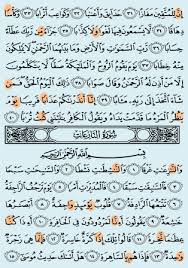 إِنَّ لِلْمُتَّقِينَ مَفَازًا ٣١ حَدَآئِقَ وَأَعْنَٰبًا ٣٢ وَكَوَاعِبَ أَتْرَابًا ٣٣ وَكَأْسًا
دِهَاقًا ٣٤ لَّا يَسْمَعُونَ فِيهَا لَغْوًا وَلَا كِذَّٰبًا ٣٥ جَزَآءً مِّن رَّبِّكَ عَطَآءً
حِسَابًا ٣٦ رَّبِّ ٱلسَّمَٰوَٰتِ وَٱلْأَرْضِ وَمَا بَيْنَهُمَا ٱلرَّحْمَٰنِ لَا يَمْلِكُونَ
مِنْهُ خِطَابًا ٣٧ يَوْمَ يَقُومُ ٱلرُّوحُ وَٱلْمَلَٰٓئِكَةُ صَفًّا لَّا يَتَكَلَّمُونَ
إِلَّا مَنْ أَذِنَ لَهُ ٱلرَّحْمَٰنُ وَقَالَ صَوَابًا ٣٨ ذَٰلِكَ ٱلْيَوْمُ ٱلْحَقُّ فَمَن
شَآءَ ٱتَّخَذَ إِلَىٰ رَبِّهِۦ مَـَٔابًا ٣٩ إِنَّآ أَنذَرْنَٰكُمْ عَذَابًا قَرِيبًا يَوْمَ
يَنظُرُ ٱلْمَرْءُ مَا قَدَّمَتْ يَدَاهُ وَيَقُولُ ٱلْكَافِرُ يَٰلَيْتَنِى كُنتُ تُرَٰبًۢا ٤٠
سُورَةُ النَّازِعَاتِ
بِسْمِ ٱللَّهِ ٱلرَّحْمَٰنِ ٱلرَّحِيمِ
وَٱلنَّٰزِعَٰتِ غَرْقًا ١ وَٱلنَّٰشِطَٰتِ نَشْطًا ٢ وَٱلسَّٰبِحَٰتِ سَبْحًا ٣
فَٱلسَّٰبِقَٰتِ سَبْقًا ٤ فَٱلْمُدَبِّرَٰتِ أَمْرًا ٥ يَوْمَ تَرْجُفُ ٱلرَّاجِفَةُ ٦
تَتْبَعُهَا ٱلرَّادِفَةُ ٧ قُلُوبٌ يَوْمَئِذٍ وَاجِفَةٌ ٨ أَبْصَٰرُهَا
خَٰشِعَةٌ ٩ يَقُولُونَ أَءِنَّا لَمَرْدُودُونَ فِى ٱلْحَافِرَةِ ١٠ أَءِذَا كُنَّا
عِظَٰمًا نَّخِرَةً ١١ قَالُوا۟ تِلْكَ إِذًا كَرَّةٌ خَاسِرَةٌ ١٢ فَإِنَّمَا هِىَ زَجْرَةٌ
وَٰحِدَةٌ ١٣ فَإِذَا هُم بِٱلسَّاهِرَةِ ١٤ هَلْ أَتَىٰكَ حَدِيثُ مُوسَىٰٓ ١٥